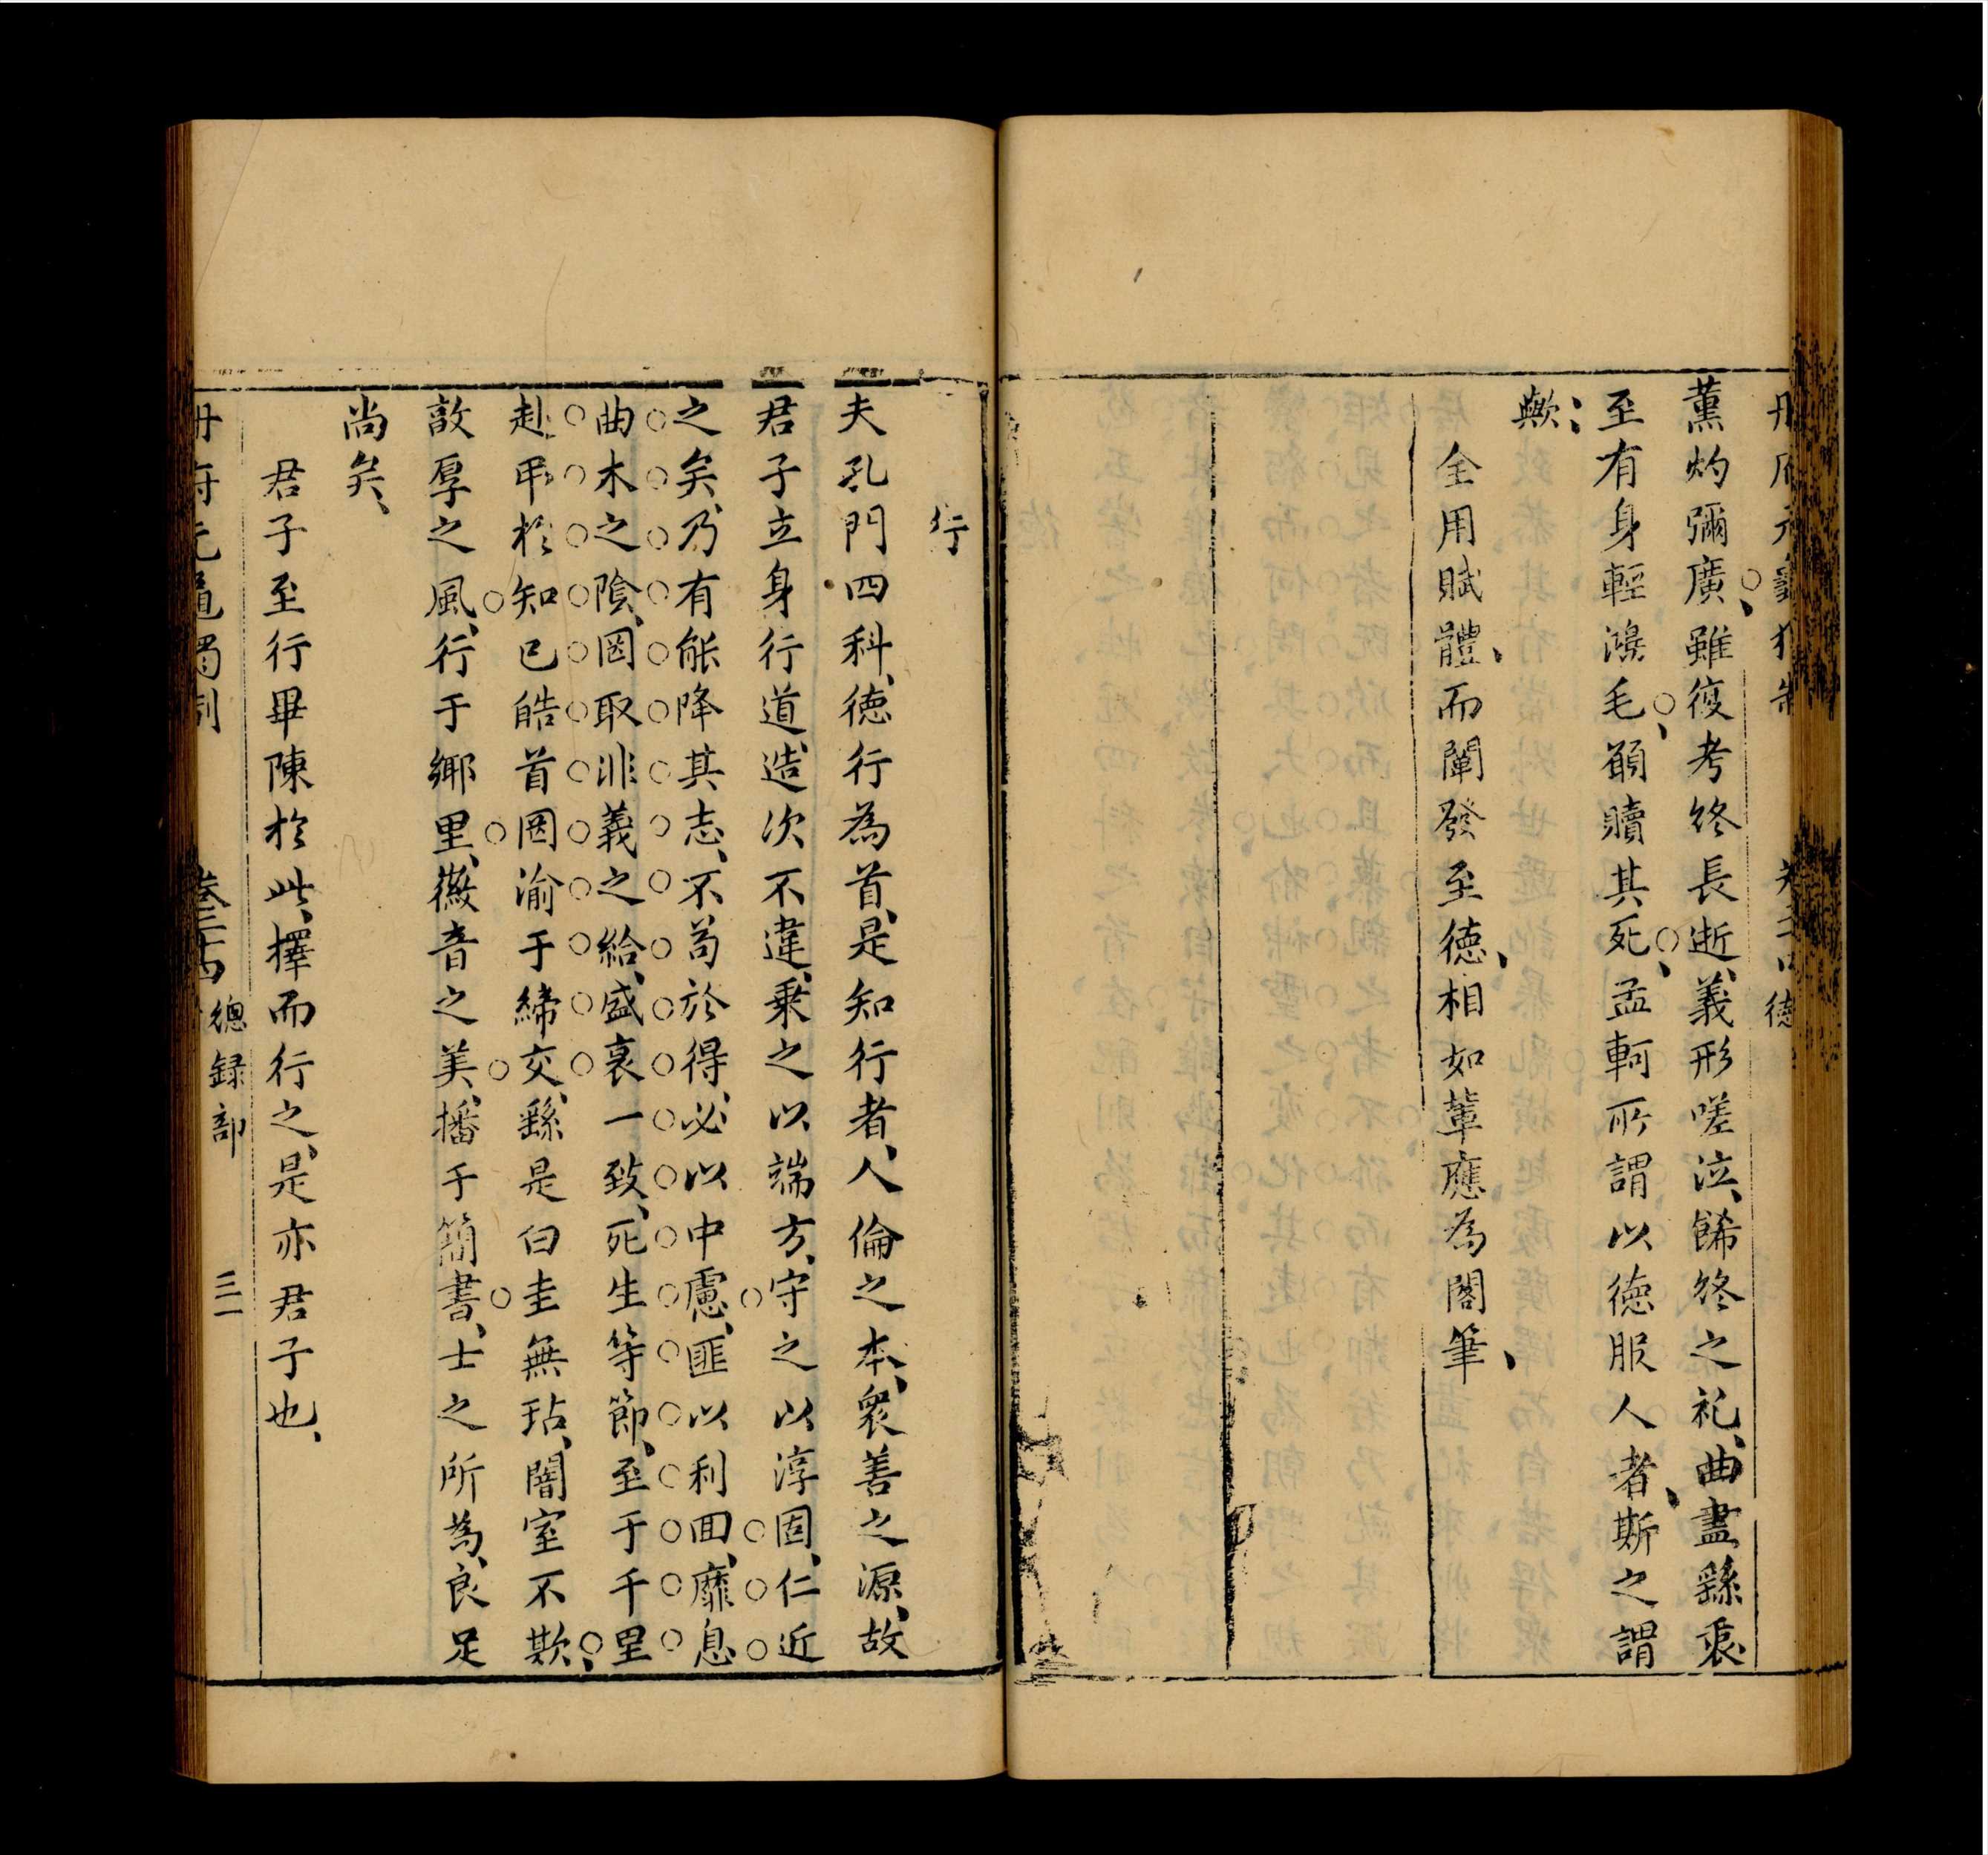 薰灼彌廣、雖復考終長逝、義形嗟泣、餙終之祀、曲盡繇衷
至有身輕鴻毛、願贖其死、孟軻所謂以德服人者、斯之謂
歟、
全用賦體、而闡發至德、相如輩應為閣筆、
行
夫孔門四科、德行為首、是知行者、人倫之本、衆善之源、故
君子立身行道、造次不違、乘之以端方、守之以淳固、仁近
之矣、乃有能降其志、不苟於得、必以中慮、匪以利回、靡息
曲木之陰、罔取非義之給、盛衰一致、死生等節、至于千里
赴弔於知已、皓首罔渝于締交、繇是白圭無玷、闇室不欺、
敦厚之風、行于鄉里、徽音之美、播于簡書、士之所為、良足
尚矣、
君子至行畢陳於此、擇而行之、是亦君子也、
總録部
三一